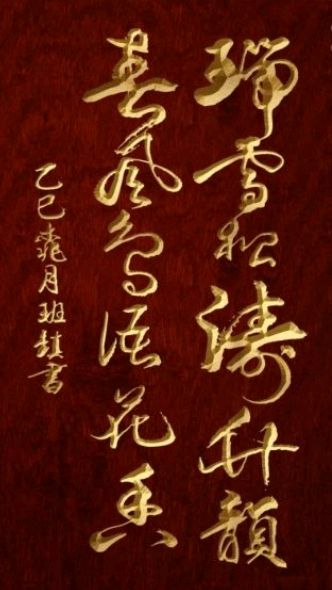 瑞雪松濤升韻
春風鳥語花香
乙巳蕤月班鎮書